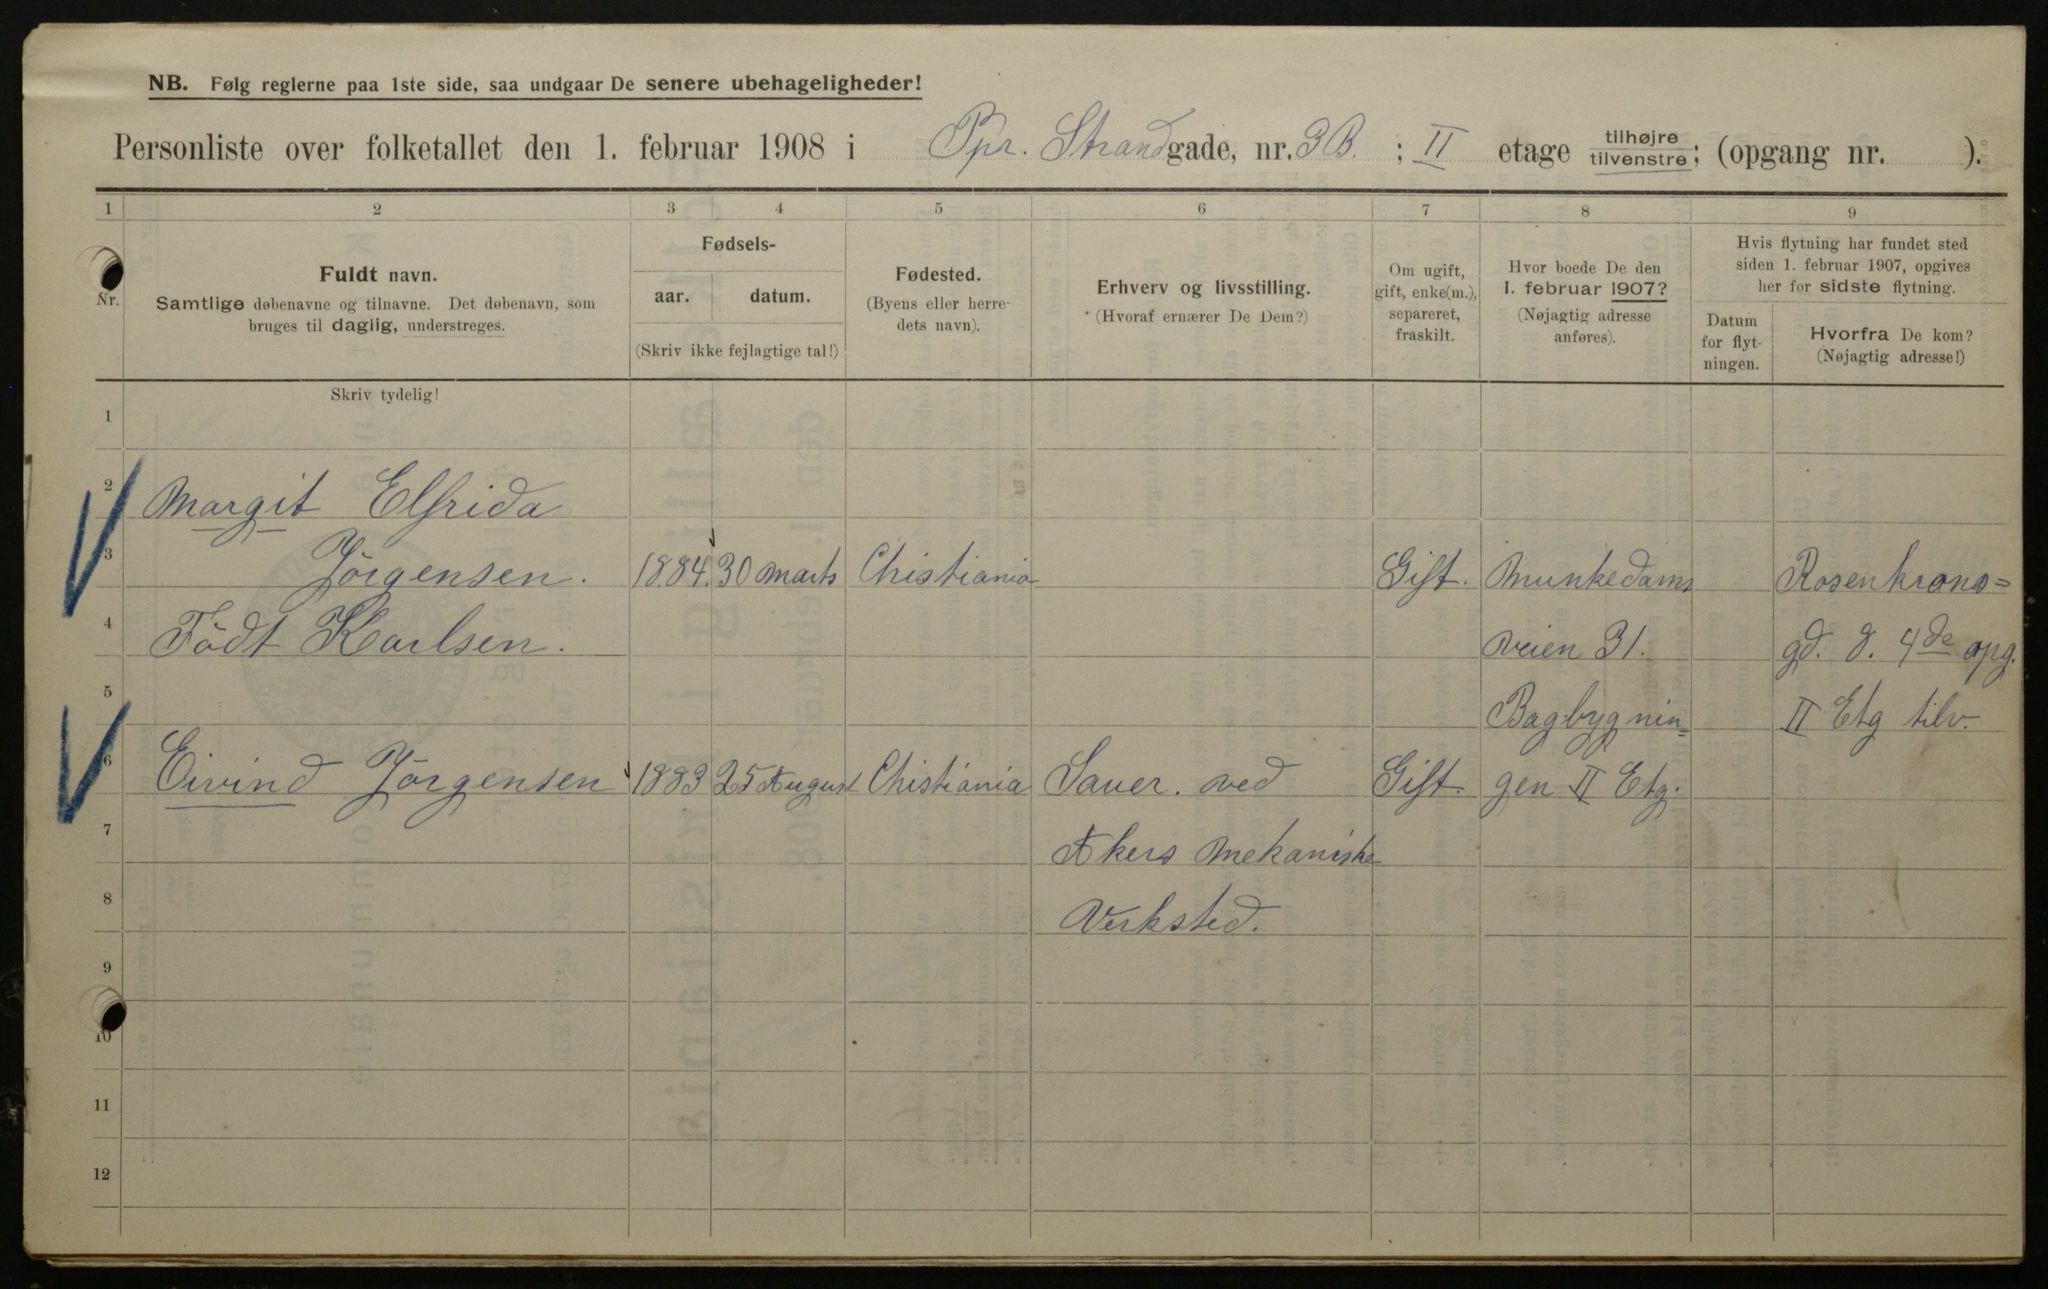 NB. Følg reglerne paa 1ste side, saa undgaar De senere ubehageligheder!
Personliste over folketallet den 1. februar 1908 i Ppr. Strandgade, nr. 3B. ; II etage tilhøjre tilvenstre; (opgang nr. ).
1 2 3 4 5 6 7 8 9
Nr.
Fuldt navn.
Samtlige døbenavne og tilnavne. Det døbenavn, som
bruges til daglig, understreges.
Skriv tydelig!
Fødsels-
aar. datum.
(Skriv ikke fejlagtige tal!)
Fødested.
(Byens eller herre-
dets navn).
Erhverv og livsstilling.
(Hvoraf ernærer De Dem?)
Om ugift,
gift, enke(m.),
separeret,
fraskilt.
Hvor boede De den
1. februar 1907?
(Nøjagtig adresse
anføres).
Hvis flytning har fundet sted
siden 1. februar 1907, opgives
her for sidste flytning.
Datum
for flyt-
ningen.
Hvorfra De kom?
(Nøjagtig adresse!)
1
2 Margit Elfrida
3 Jörgensen. 1884. 30 Marts Christiania Gift. Munkedams Rosenkrans=
4 Födt Karlsen. veien 31. gd. 8. 4de opg.
5 Bagbygnin= II Etg tilv.
6 Eivind Jörgensen 1883 25 August Christiania Saver. ved Gift. gen II Etg.
7 Akers Mekaniske
8 Verksted.
9
10
11
12